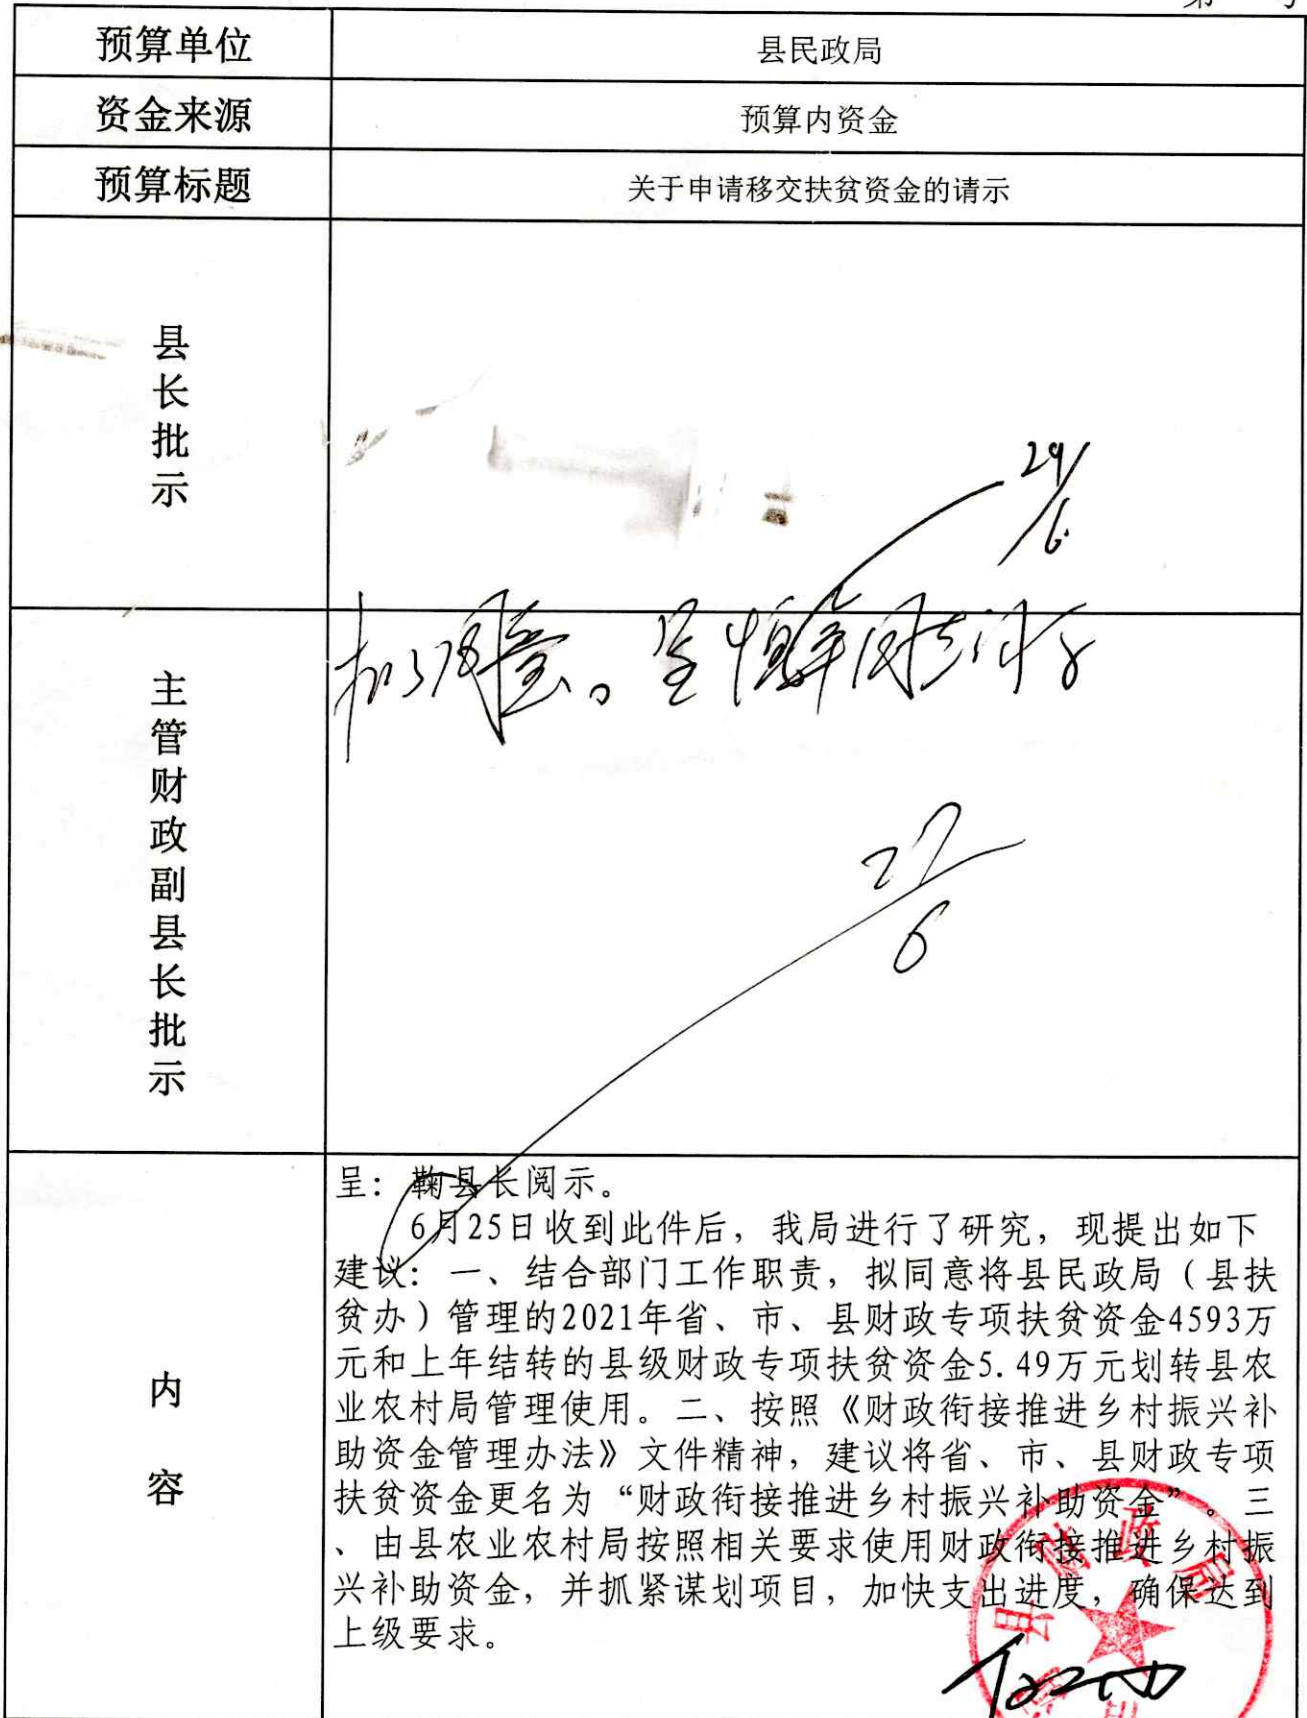 预算单位 县民政局
资金来源 预算内资金
预算标题 关于申请移交扶贫资金的请示
县长批示
29/6
主管财政副县长批示
拟同意。呈
27/6
内容
呈：鞠县长阅示。
6月25日收到此件后，我局进行了研究，现提出如下
建议：一、结合部门工作职责，拟同意将县民政局（县扶
贫办）管理的2021年省、市、县财政专项扶贫资金4593万
元和上年结转的县级财政专项扶贫资金5.49万元划转县农
业农村局管理使用。二、按照《财政衔接推进乡村振兴补
助资金管理办法》文件精神，建议将省、市、县财政专项
扶贫资金更名为“财政衔接推进乡村振兴补助资金”。三
、由县农业农村局按照相关要求使用财政衔接推进乡村振
兴补助资金，并抓紧谋划项目，加快支出进度，确保达到
上级要求。
县财政局